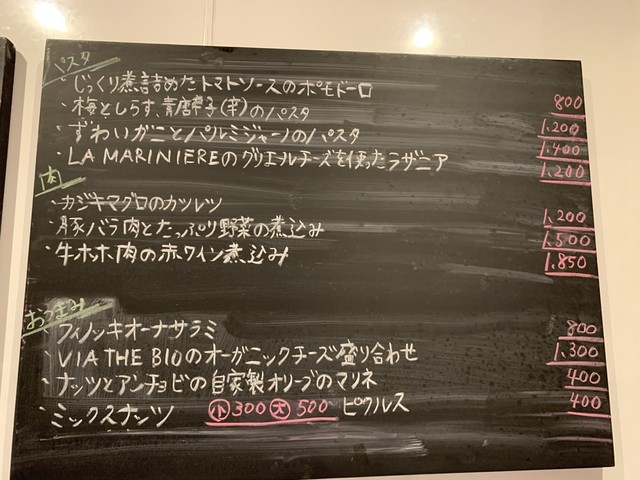 パスタ
・じっくり煮詰めたトマトソースのポモドーロ 800
・梅としらす、青唐辛子(辛)のパスタ 1.200
・ずわいガニとパルミジャーノのパスタ 1.400
・LA MARINIEREのグリエールチーズを使ったラザニア 1.200
肉
・カジキマグロのカツレツ 1.200
・豚バラ肉とたっぷり野菜の煮込み 1.500
・牛ホホ肉の赤ワイン煮込み 1.850
おつまみ
・フィノッキオーナサラミ 800
・VIA THE BIOのオーガニックチーズ盛り合わせ 1.300
・ナッツとアンチョビの自家製オリーブのマリネ 400
・ミックスナッツ 小300 大500 ピクルス 400